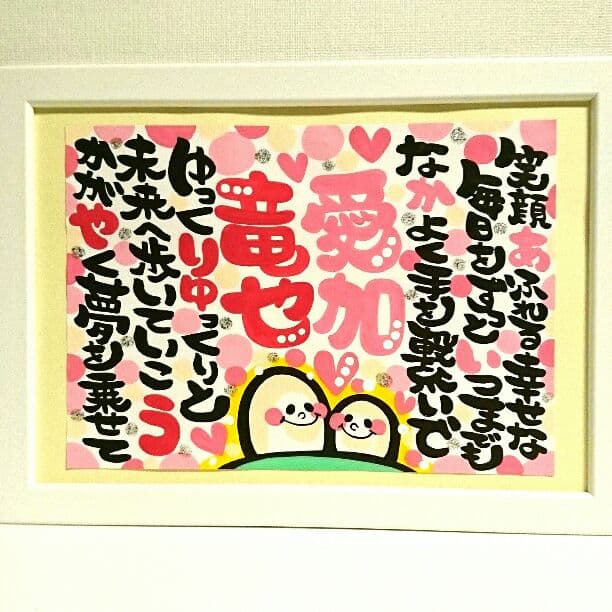 笑顔あふれる幸せな
毎日をずっといつまでも
なかよく手を繋いで
愛加
竜也
ゆっくりゆっくりと
未来へ歩いていこう
かがやく夢を乗せて